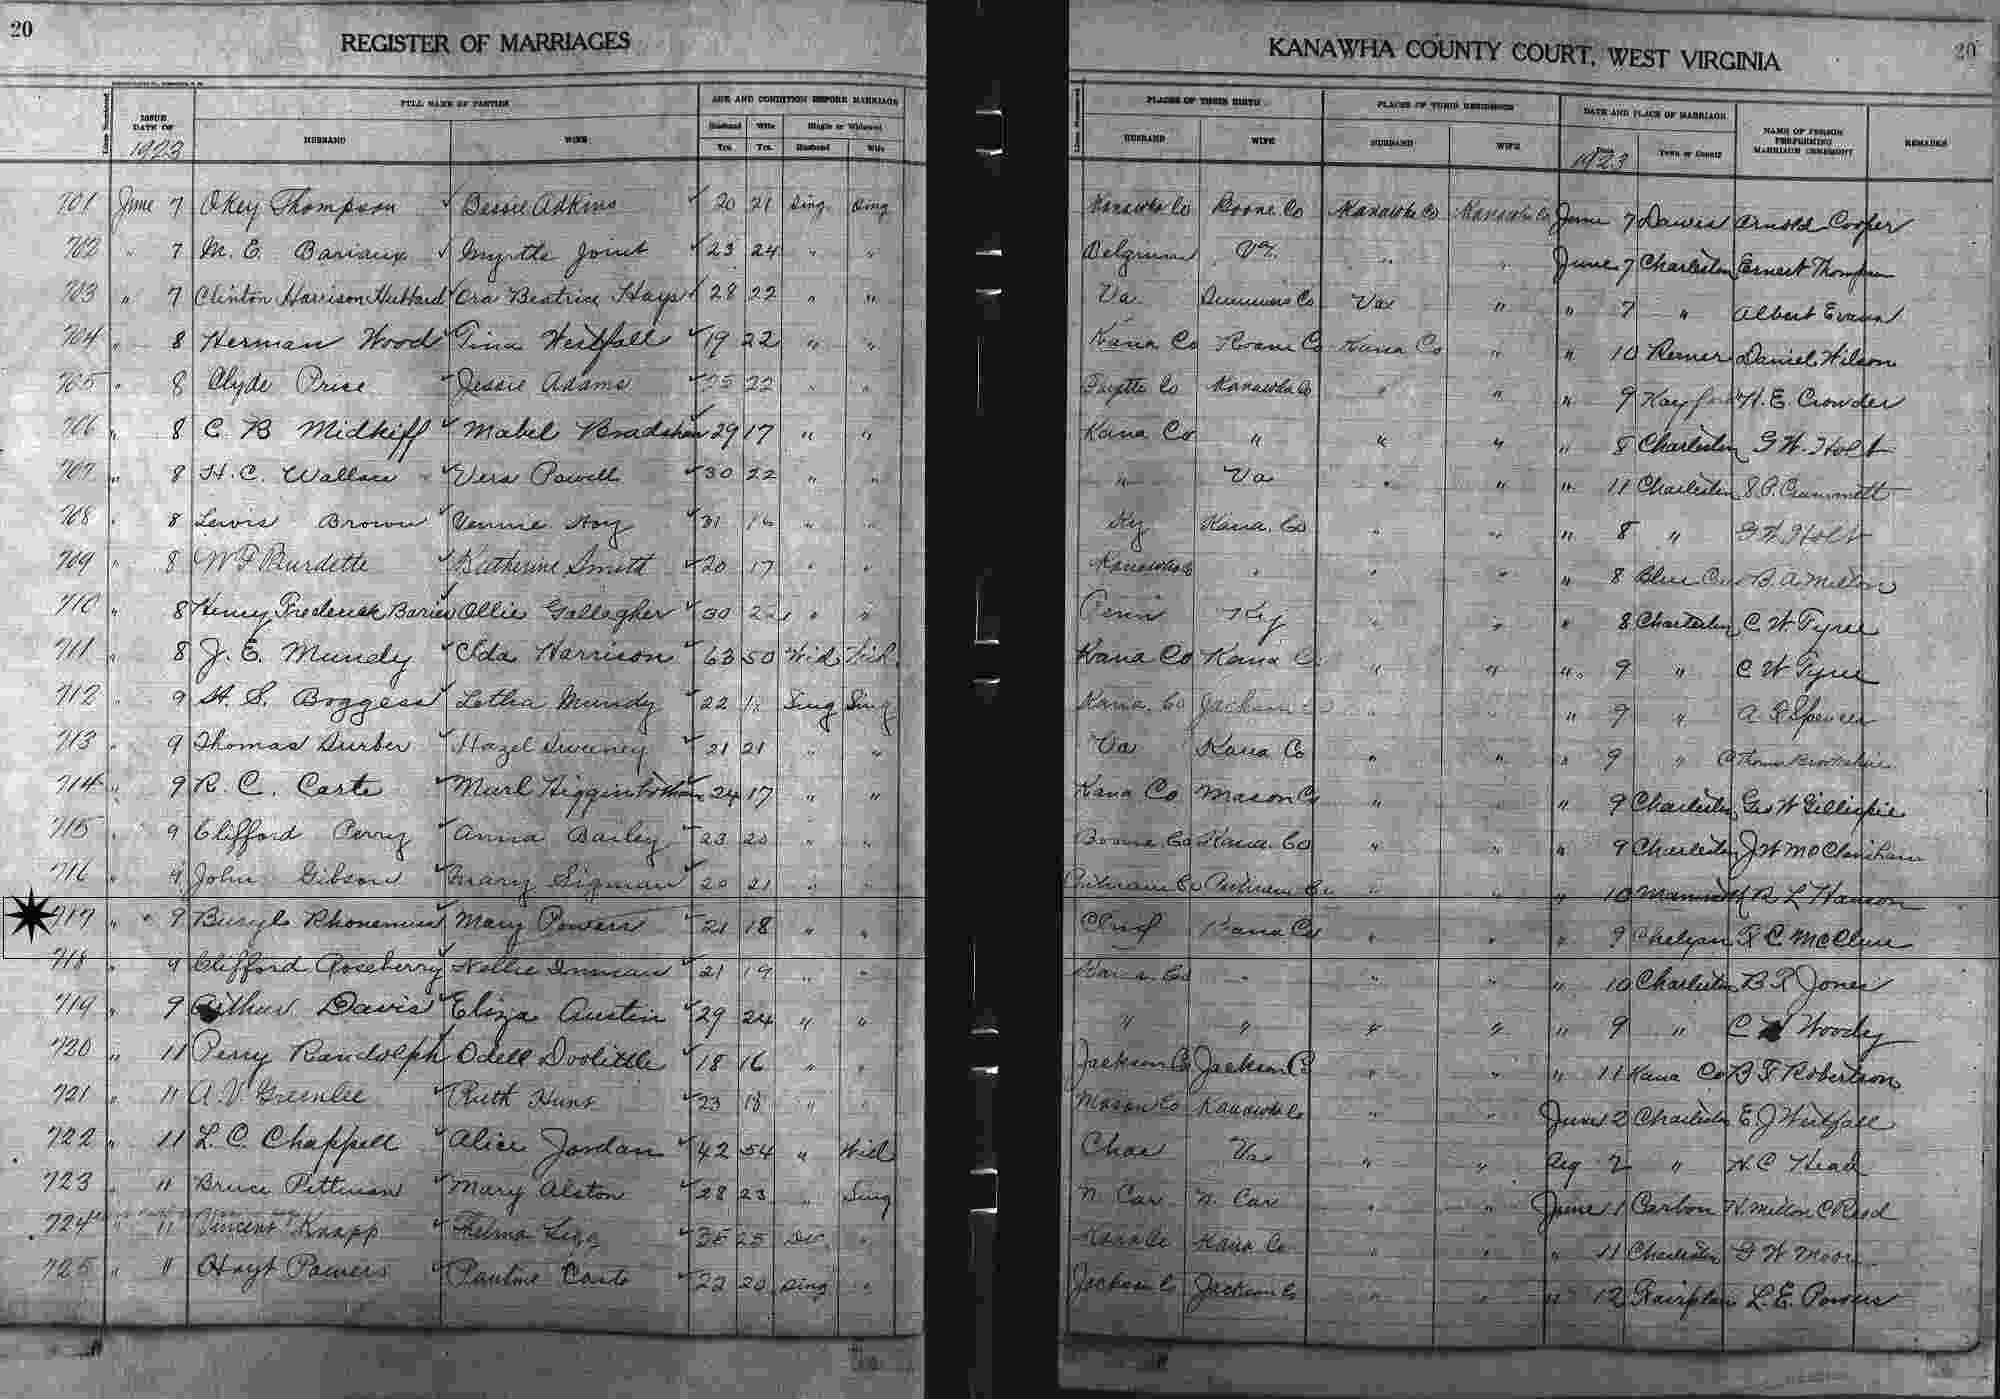 20
REGISTER OF MARRIAGES
KANAWHA COUNTY COURT, WEST VIRGINIA
20
License Numbered
ISSUE DATE OF 1923
FULL NAME OF PARTIES
AGE AND CONDITION BEFORE MARRIAGE
License Numbered
PLACES OF THEIR BIRTH
PLACES OF THEIR RESIDENCE
DATE AND PLACE OF MARRIAGE
NAME OF PERSON PERFORMING MARRIAGE CEREMONY
REMARKS
HUSBAND
WIFE
Husband
Wife
Single or Widowed
HUSBAND
WIFE
HUSBAND
WIFE
Date 1923
Town or County
Yrs.
Yrs.
Husband
Wife
701 June 7 Okey Thompson Bessie Adkins 20 21 Sing Sing Kanawha Co Boone Co Kanawha Co Kanawha Co June 7 Dawes Arnold Cooper
702 " 7 M. E. Bariaux Myrtle Joint 23 24 " " Belgium Va " " June 7 Charleston Ernest Thompson
703 " 7 Clinton Harrison Hubbard Ora Beatrice Hays 28 22 " " Va Co Va " " 7 " Albert Evans
704 " 8 Herman Wood Tina Westfall 19 22 " " Kana Co Roane Co Kana Co " " 10 Daniel Wilson
705 " 8 Clyde Price Jessie Adams 25 22 " " Fayette Co Kanawha Co " " " 9 Kayford H. E. Crowder
706 " 8 C. B Midkiff Mabel Bradshaw 29 17 " " Kana Co " " " " 8 Charleston G W. Holt
707 " 8 H. C. Wallace Vera Powell 30 22 " " " Va " " " 11 Charleston Crummett
708 " 8 Lewis Brown Vennie Hoy 31 16 " " Ky Kana. Co " " " 8 " G W Holt
709 " 8 W F Burdette Katherine Smith 20 17 " " Kanawha Co " " " " 8 Blue B. A. Milton
710 " 8 Henry Frederick Ollie Gallagher 30 22 " " Penn Ky " " " 8 Charleston C W Tyree
711 " 8 J. E. Mundy Ida Harrison 63 50 Wid Wid Kana Co Kana Co " " " 9 " C W Tyree
712 " 9 H. S. Boggess Letha Mundy 22 Sing Sing Kana. Co Jackson Co " " " 9 " Spencer
713 " 9 Thomas Surber Hazel Sweeney 21 21 " " Va Kana Co " " " 9 "
714 " 9 R. C. Carte Higginbotham 24 17 " " Kana Co Mason Co " " " 9 Charleston Geo W Gillispie
715 " 9 Clifford Perry Anna Bailey 23 20 " " Boone Co Kana. Co " " " 9 Charleston J W McClanihan
716 " 9 John Gibson Mary Sigman 20 21 " " Putnam Co Putnam Co " " " 10 L Hanson
717 " 9 Beryl Rhonemus Mary Powers 21 18 " " Kana. Co " " " 9 Chelyan McClure
718 " 9 Clifford Roseberry Nellie Inman 21 19 " " Kana. Co " " " " 10 Charleston Jones
719 " 9 Arthur Davis Eliza Austin 29 24 " " " " " " " 9 " C Woody
720 " 11 Perry Randolph Odell Doolittle 18 16 " " Jackson Co Jackson Co " " " 11 Kana Co B F Robertson
721 " 11 A. V. Greenlee Ruth Hunt 23 18 " " Mason Co Kanawha Co " " June 12 Charleston E J Westfall
722 " 11 L. C. Chappell Alice Jordan 42 54 " Wid Va " " Aug 2 " H. C Head
723 " 11 Bruce Pittman Mary Alston 28 23 " Sing N. Car N. Car " " June 11 Carbon H. Milton C Reid
724 " 11 Vincent Knapp Thelma 35 25 Div " Kana Co Kana Co " " " 11 Charleston G W Moore
725 " 11 Hoyt Powers Pauline Casto 22 20 Sing " Jackson Co Jackson Co " " " 12 Fairplain L. E. Powers